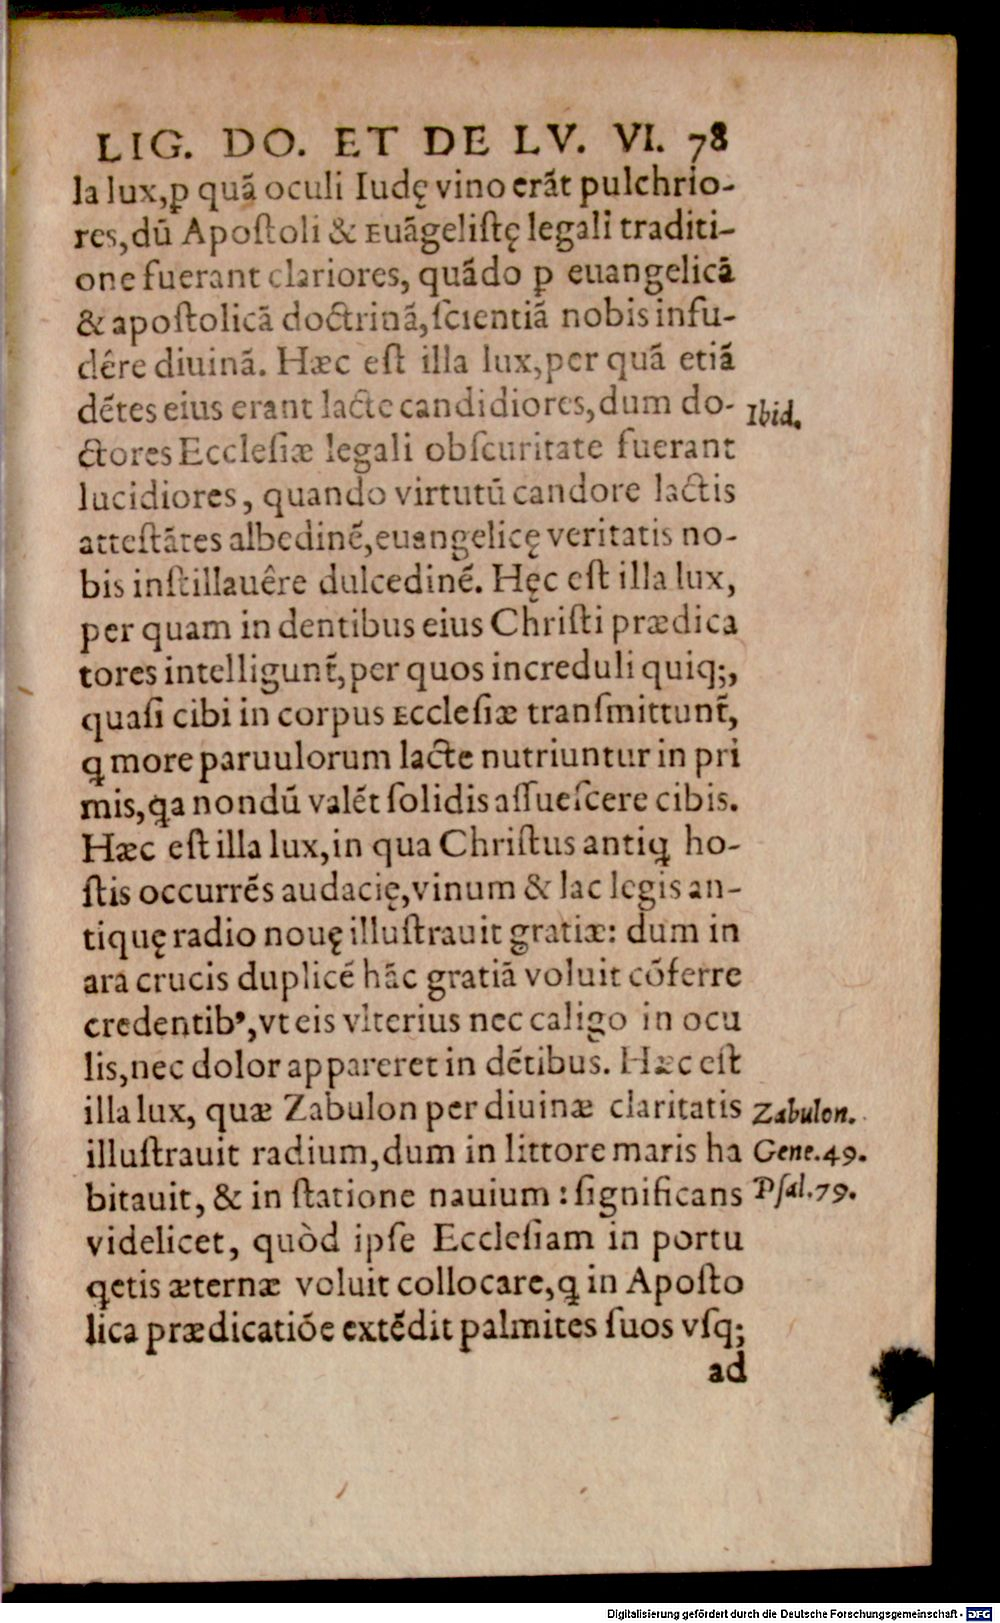 LIG. DO. ET DE LV. VI. 78
la lux,ꝑ quā oculi Iudę vino erāt pulchrio-
res,dū Apoſtoli & Euāgeliſtę legali traditi-
one fuerant clariores, quādo ꝑ euangelicā
& apoſtolicā doctrinā,ſcientiā nobis infu-
dêre diuinā. Hæc eſt illa lux,per quā etiā
dētes eius erant lacte candidiores,dum do-
ctores Eccleſiæ legali obſcuritate fuerant
lucidiores, quando virtutū candore lactis
atteſtātes albedinē,euangelicę veritatis no-
bis inſtillauêre dulcedinē. Hęc eſt illa lux,
per quam in dentibus eius Chriſti prædica
tores intelligunt̄,per quos increduli quiq;,
quaſi cibi in corpus Eccleſiæ tranſmittunt̄,
ꝗ more paruulorum lacte nutriuntur in pri
mis,ꝗa nondū valēt ſolidis aſſueſcere cibis.
Hæc eſt illa lux,in qua Chriſtus antiꝗ ho-
ſtis occurrēs audacię,vinum & lac legis an-
tiquę radio nouę illuſtrauit gratiæ: dum in
ara crucis duplicē hāc gratiā voluit cōferre
credentibꝰ,vt eis vlterius nec caligo in ocu
lis,nec dolor appareret in dētibus. Hæc eſt
illa lux, quæ Zabulon per diuinæ claritatis
illuſtrauit radium,dum in littore maris ha
bitauit, & in ſtatione nauium : ſignificans
videlicet, quòd ipſe Eccleſiam in portu
ꝗetis æternæ voluit collocare,ꝗ in Apoſto
lica prædicatiōe extēdit palmites ſuos vſq;
ad
Ibid.
Zabulon.
Gene.49.
Pſal.79.
Digitalisierung gefördert durch die Deutsche Forschungsgemeinschaft - DFG